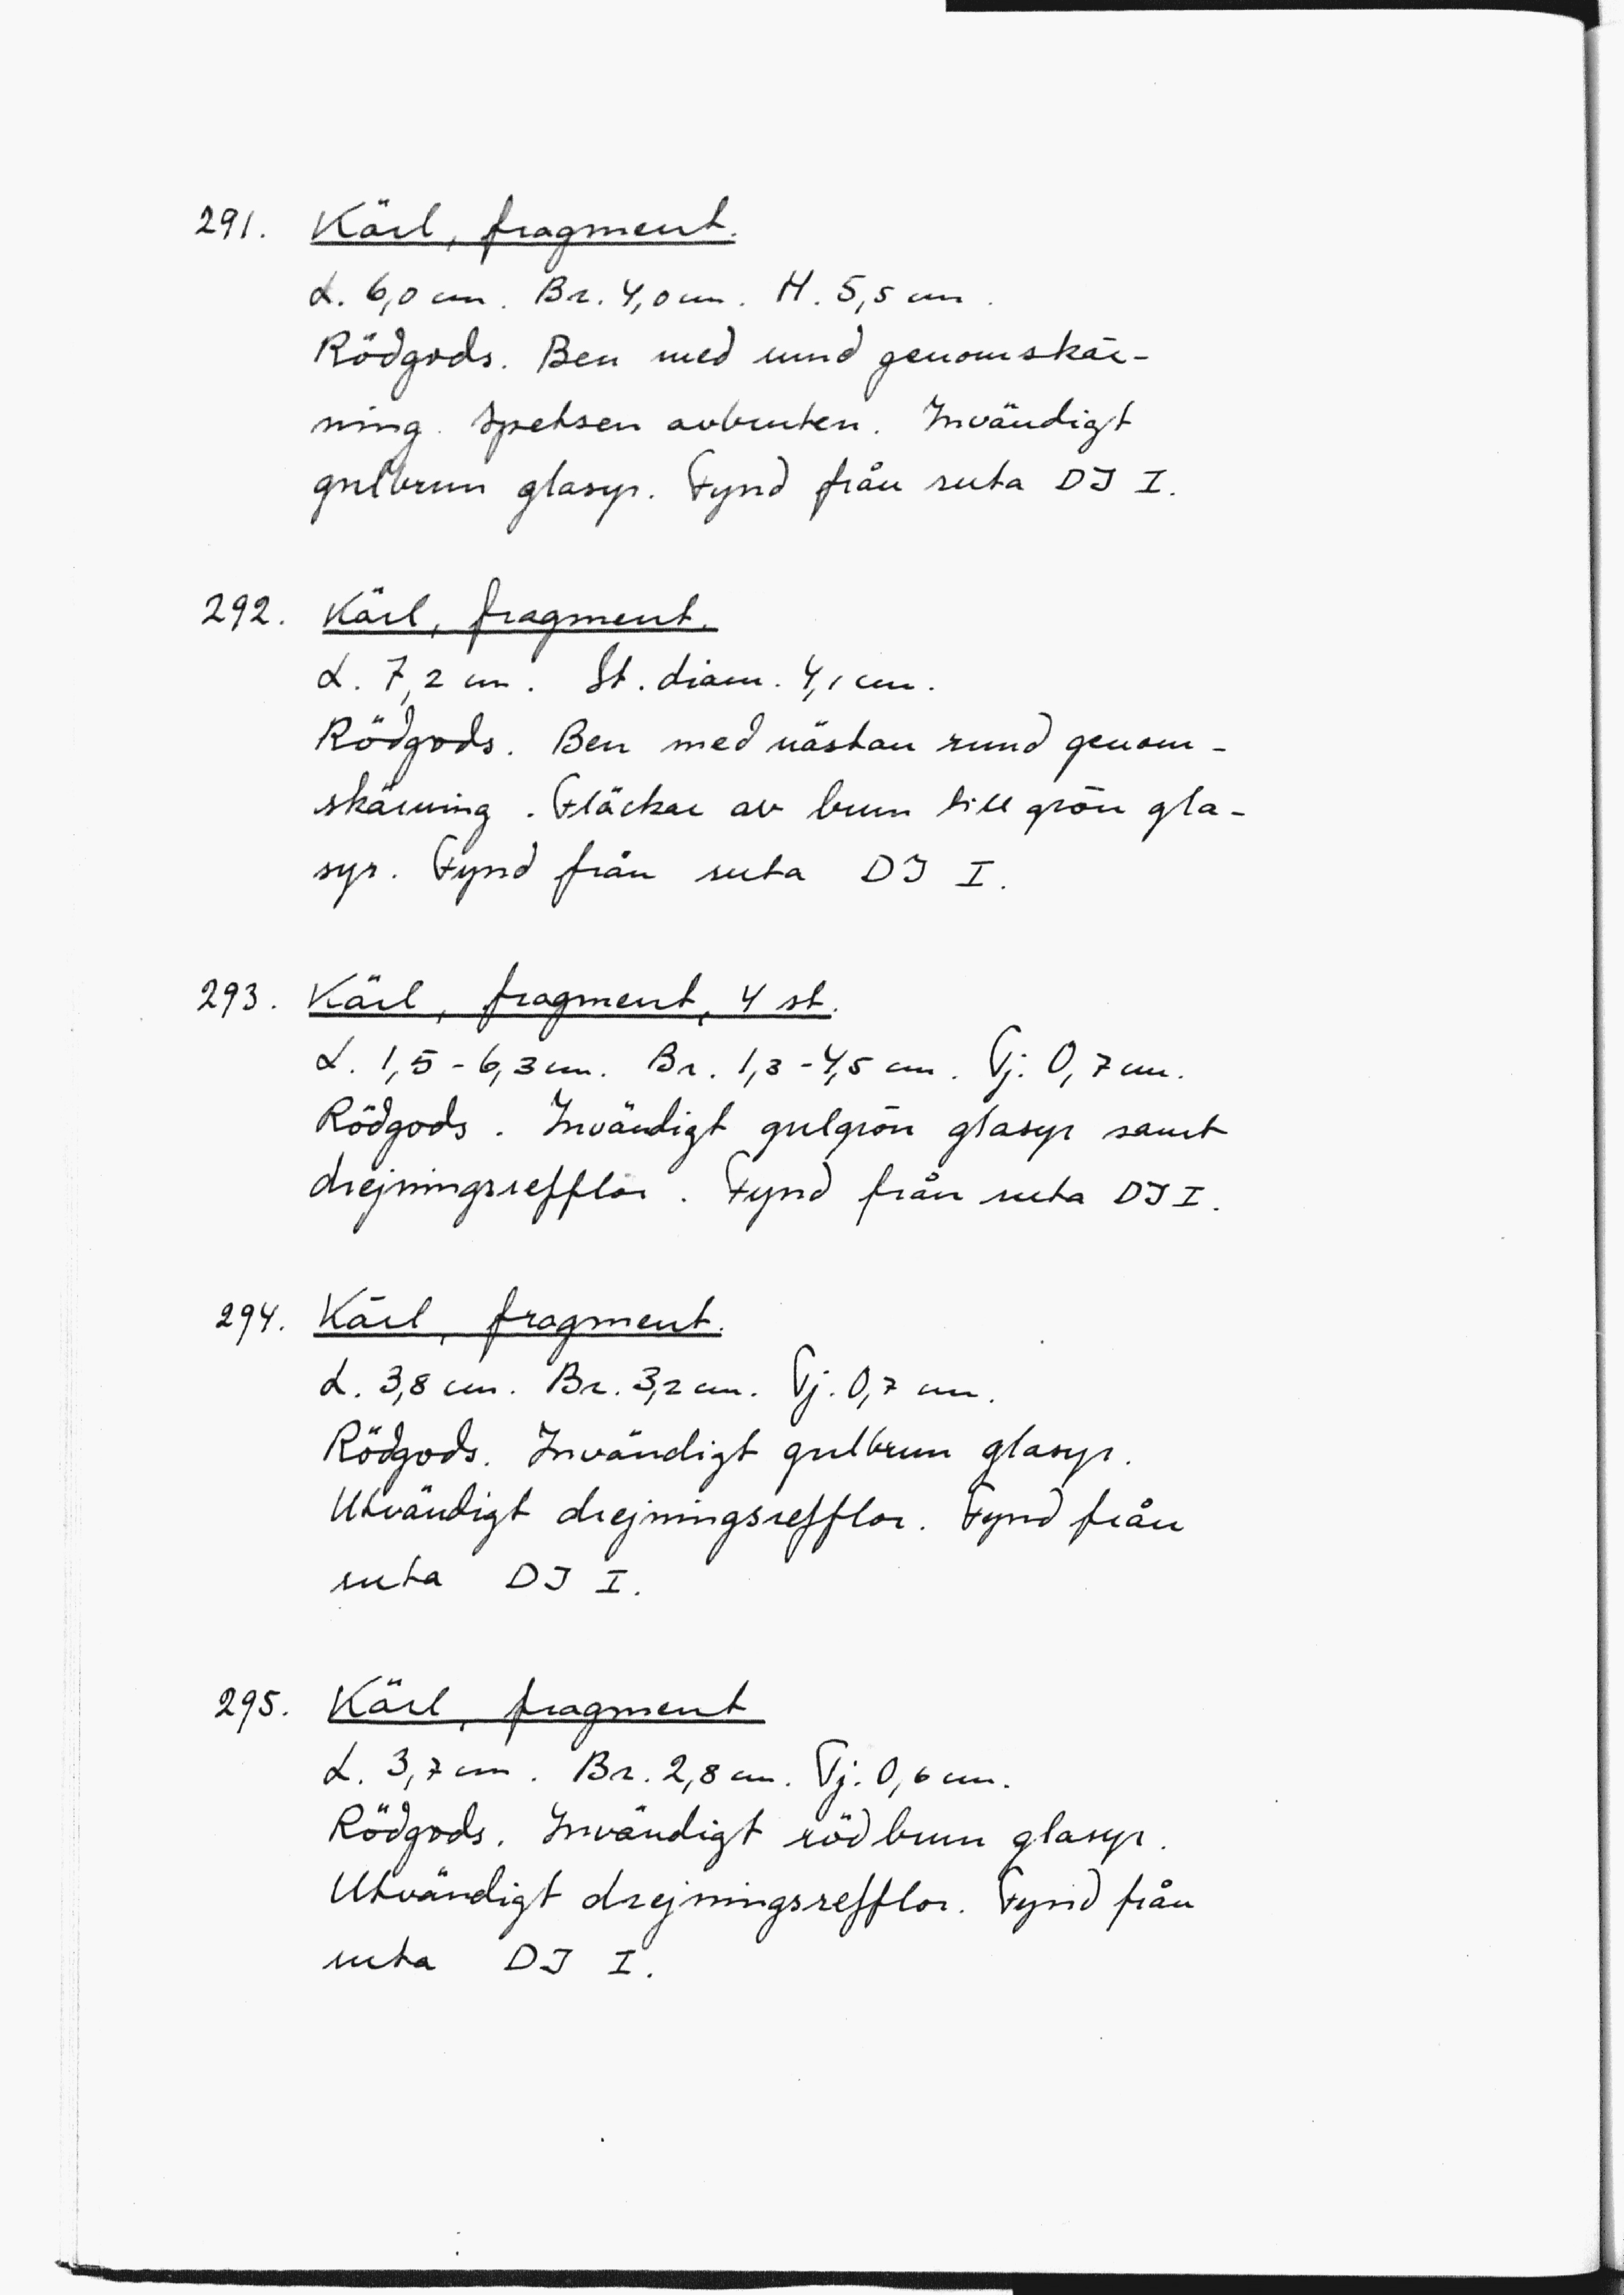 291. Kärl, fragment.
L. 6,0 cm. Br. 4,0 cm. H. 5,5 cm.
Rödgods. Ben med rund genomskär-
ning. Spetsen avbruten. Invändigt
gulbrun glasyr. Fynd från ruta DJ I.
292. Kärl, fragment.
L. 7,2 cm. St. diam. 4,1 cm.
Rödgods. Ben med nästan rund genom-
skärning. Fläckar av brun till grön gla-
syr. Fynd från ruta DJ I.
293. Kärl, fragment, 4 st.
L. 1,5-6,3 cm. Br. 1,3-4,5 cm. Tj. 0,7 cm.
Rödgods. Invändigt gulgrön glasyr samt
drejningsrefflor. Fynd från ruta DJ I.
294. Kärl, fragment.
L. 3,8 cm. Br. 3,2 cm. Tj. 0,7 cm.
Rödgods. Invändigt gulbrun glasyr.
Utvändigt drejningsrefflor. Fynd från
ruta DJ I.
295. Kärl, fragment
L. 3,7 cm. Br. 2,8 cm. Tj. 0,6 cm.
Rödgods. Invändigt rödbrun glasyr.
Utvändigt drejningsrefflor. Fynd från
ruta DJ I.